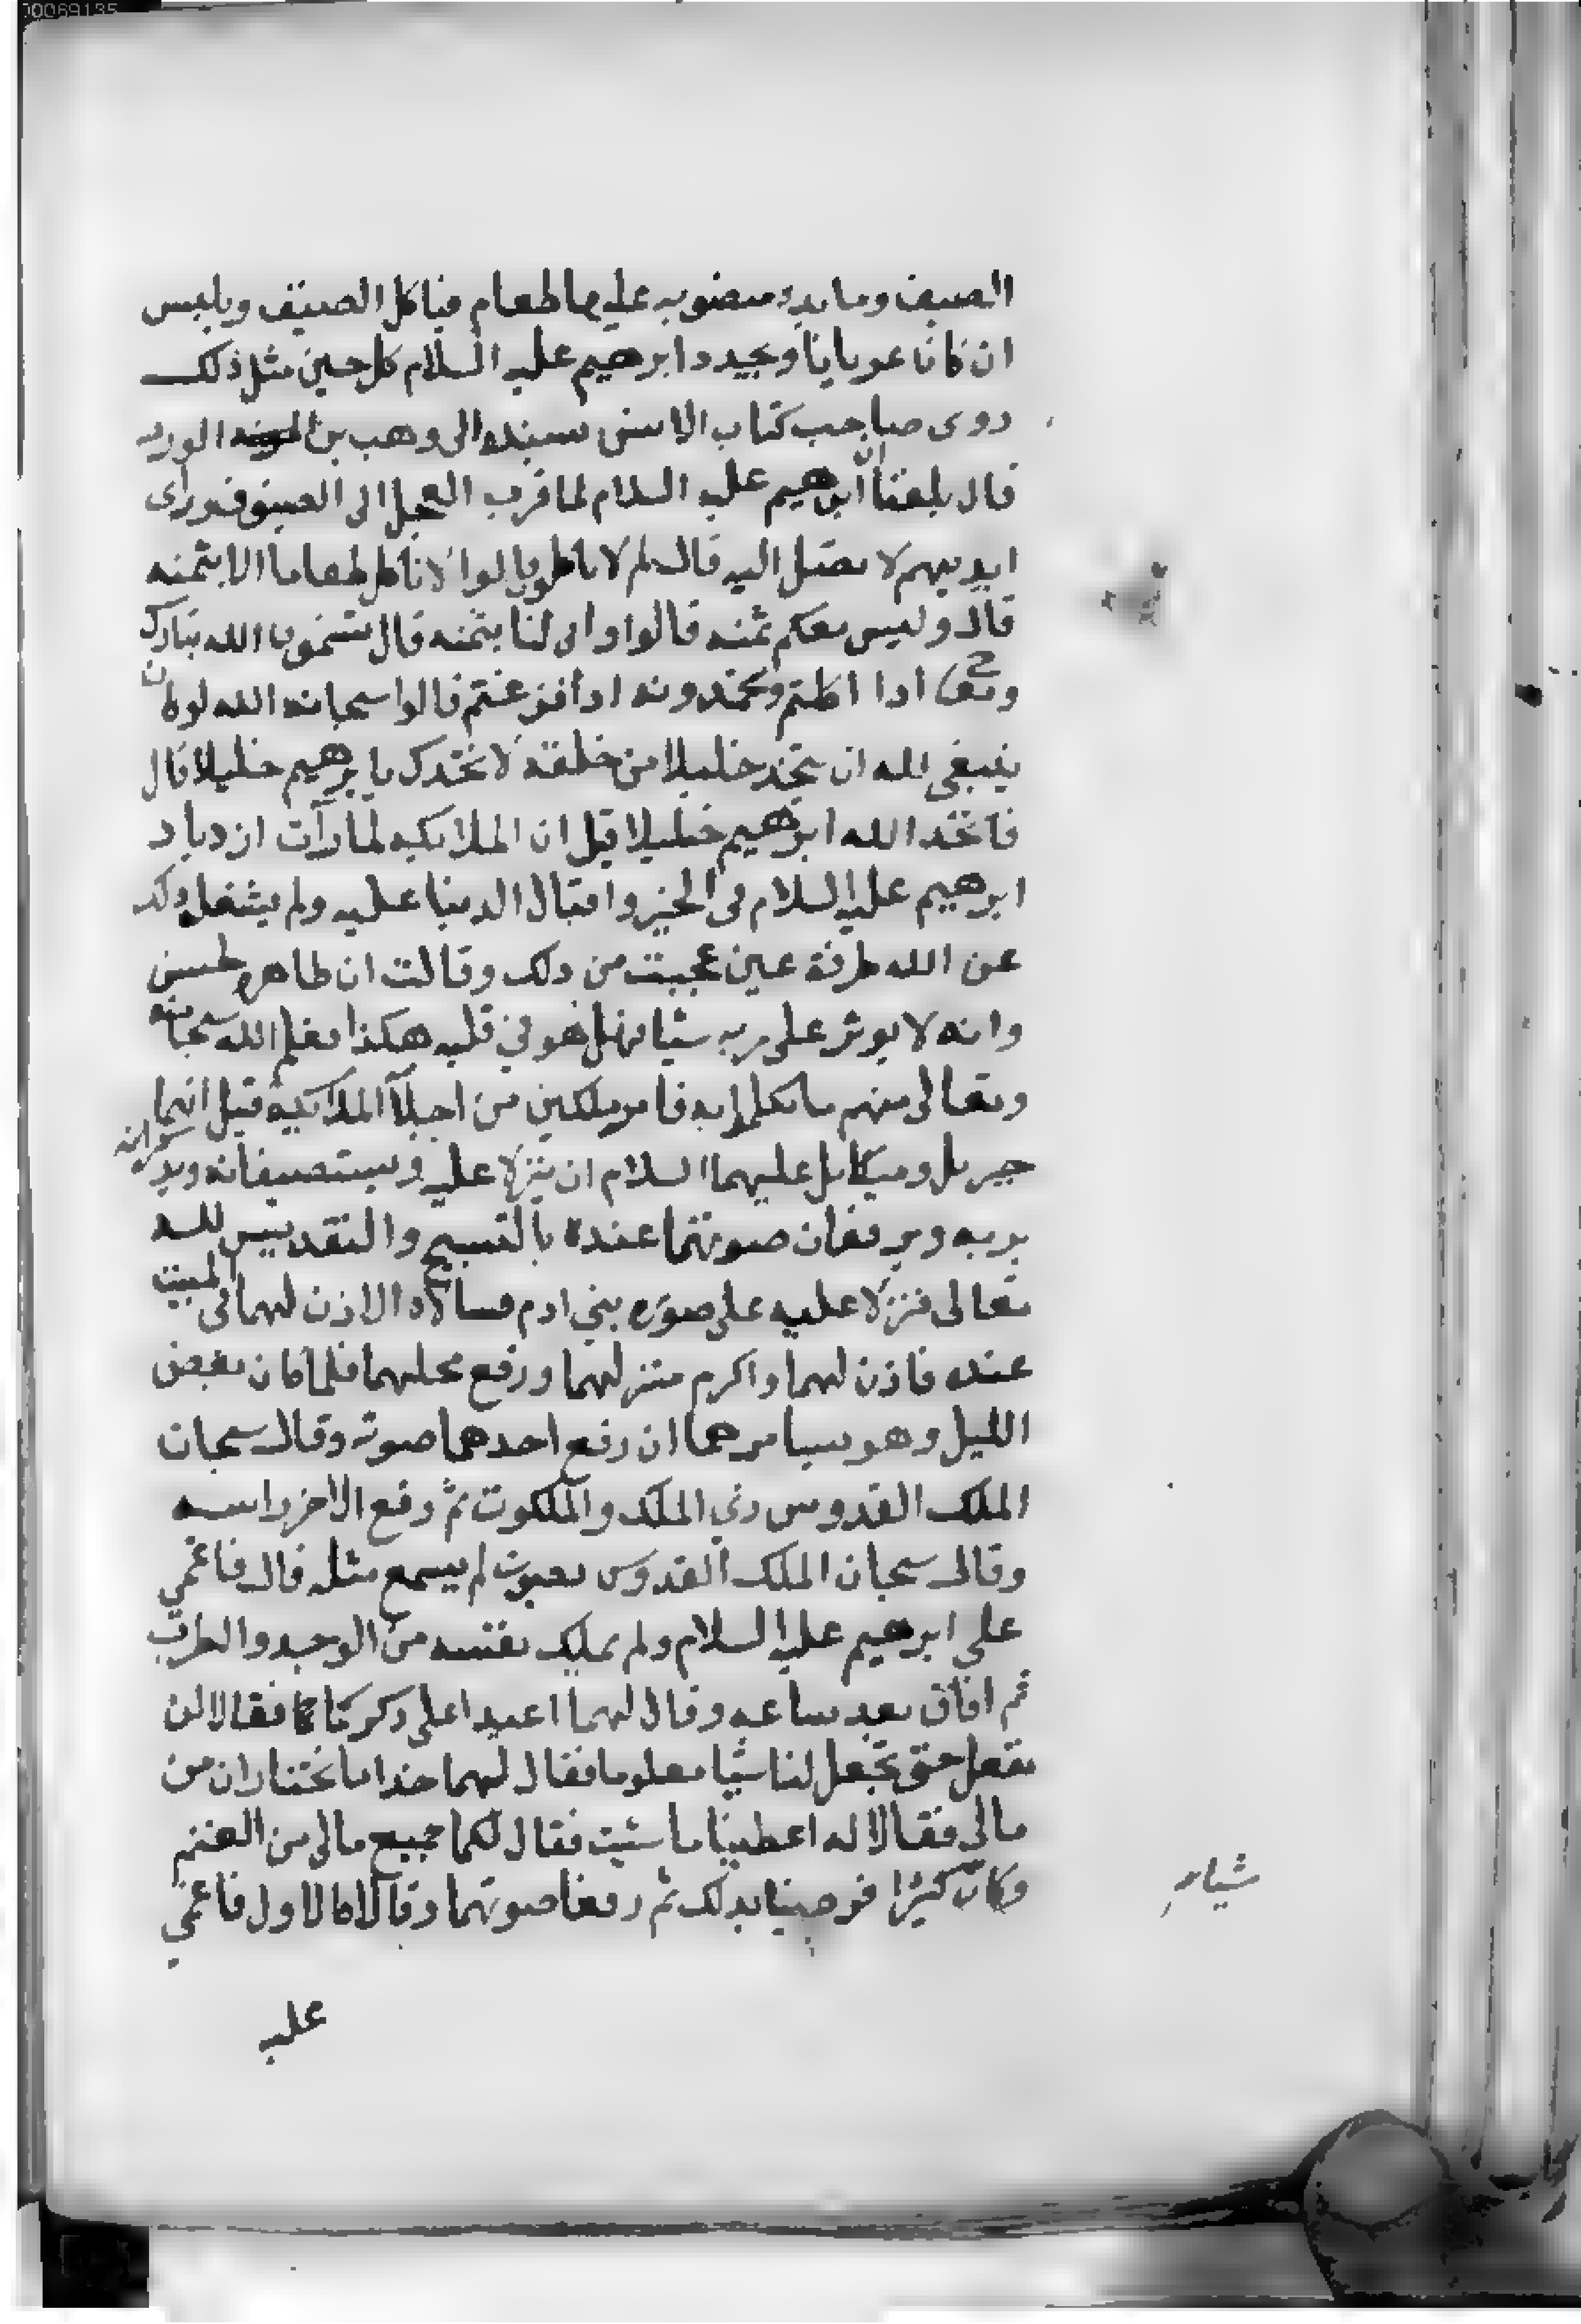 00069135
الضيف ومايده منصوبه عليها طعام فياكل الضيف ويلبس
ان كان عريانا ويجدد ابرهيم عليه السلام كل حين مثل ذلك
روى صاحب كتاب الاسنى بسنده الى وهب بن الورد
قال بلغنا ان ابرهيم عليه السلام لما قرب العجل الى الضيوف وراى
ايديهم لا تصل اليه قال لم لا تاكلون قالوا لا ناكل طعاما الا بثمنه
قال وليس معكم ثمنه قالوا وانى لنا بثمنه قال تسمون الله تبارك
وتعالى اذا اكلتم وتحمدونه اذا فرغتم قالوا سبحان الله لو كان
ينبغي لله ان يتخذ خليلا من خلقه لاتخذك يا ابرهيم خليلا قال
فاتخذ الله ابرهيم خليلا قيل ان الملايكه لما رآت ازدياد
ابرهيم عليه السلام في الخير واقبال الدنيا عليه ولم يشغله ذلك
عن الله طرفة عين عجبت من ذلك وقالت ان ظاهره حسن
وانه لا يوثر على ربه شيا فهل هو في قلبه هكذا فعلم الله سبحانه
وتعالى منهم ما تكلموا به فامر ملكين من اجلآ الملآئكيه قيل انهما
جبريل وميكايل عليهما السلام ان ينزلا عليه ويستضيفانه ويذكرانه
بربه ويرفعان صوتهما عنده بالتسبيح والتقديس لله
تعالى فنزلا عليه على صوره بني ادم فسالاه الاذن لهما في المبيت
عنده فاذن لهما واكرم منزلهما ورفع محلهما فلما كان بعض
الليل وهو يسامرهما ان رفع احدهما صوته وقال سبحان
الملك القدوس ذي الملك والملكوت ثم رفع الاخر راسه
وقال سبحان الملك القدوس بصوت لم يسمع مثله قال فاغمي
على ابرهيم عليه السلام ولم يملك نفسه من الوجد والطرب
ثم افاق بعد ساعه وقال لهما اعيدا على ذكركما فقالا لن
نفعل حتى تجعل لنا شيا معلوما فقال لهما خذا ما تختاران من
مالي فقالا له اعطينا ما شيت فقال لكما جميع مالي من الغنم
وكان كثيرا فرضينا بذلك ثم رفعا صوتهما وقالا كالاول فاغمي
شياه
عليه